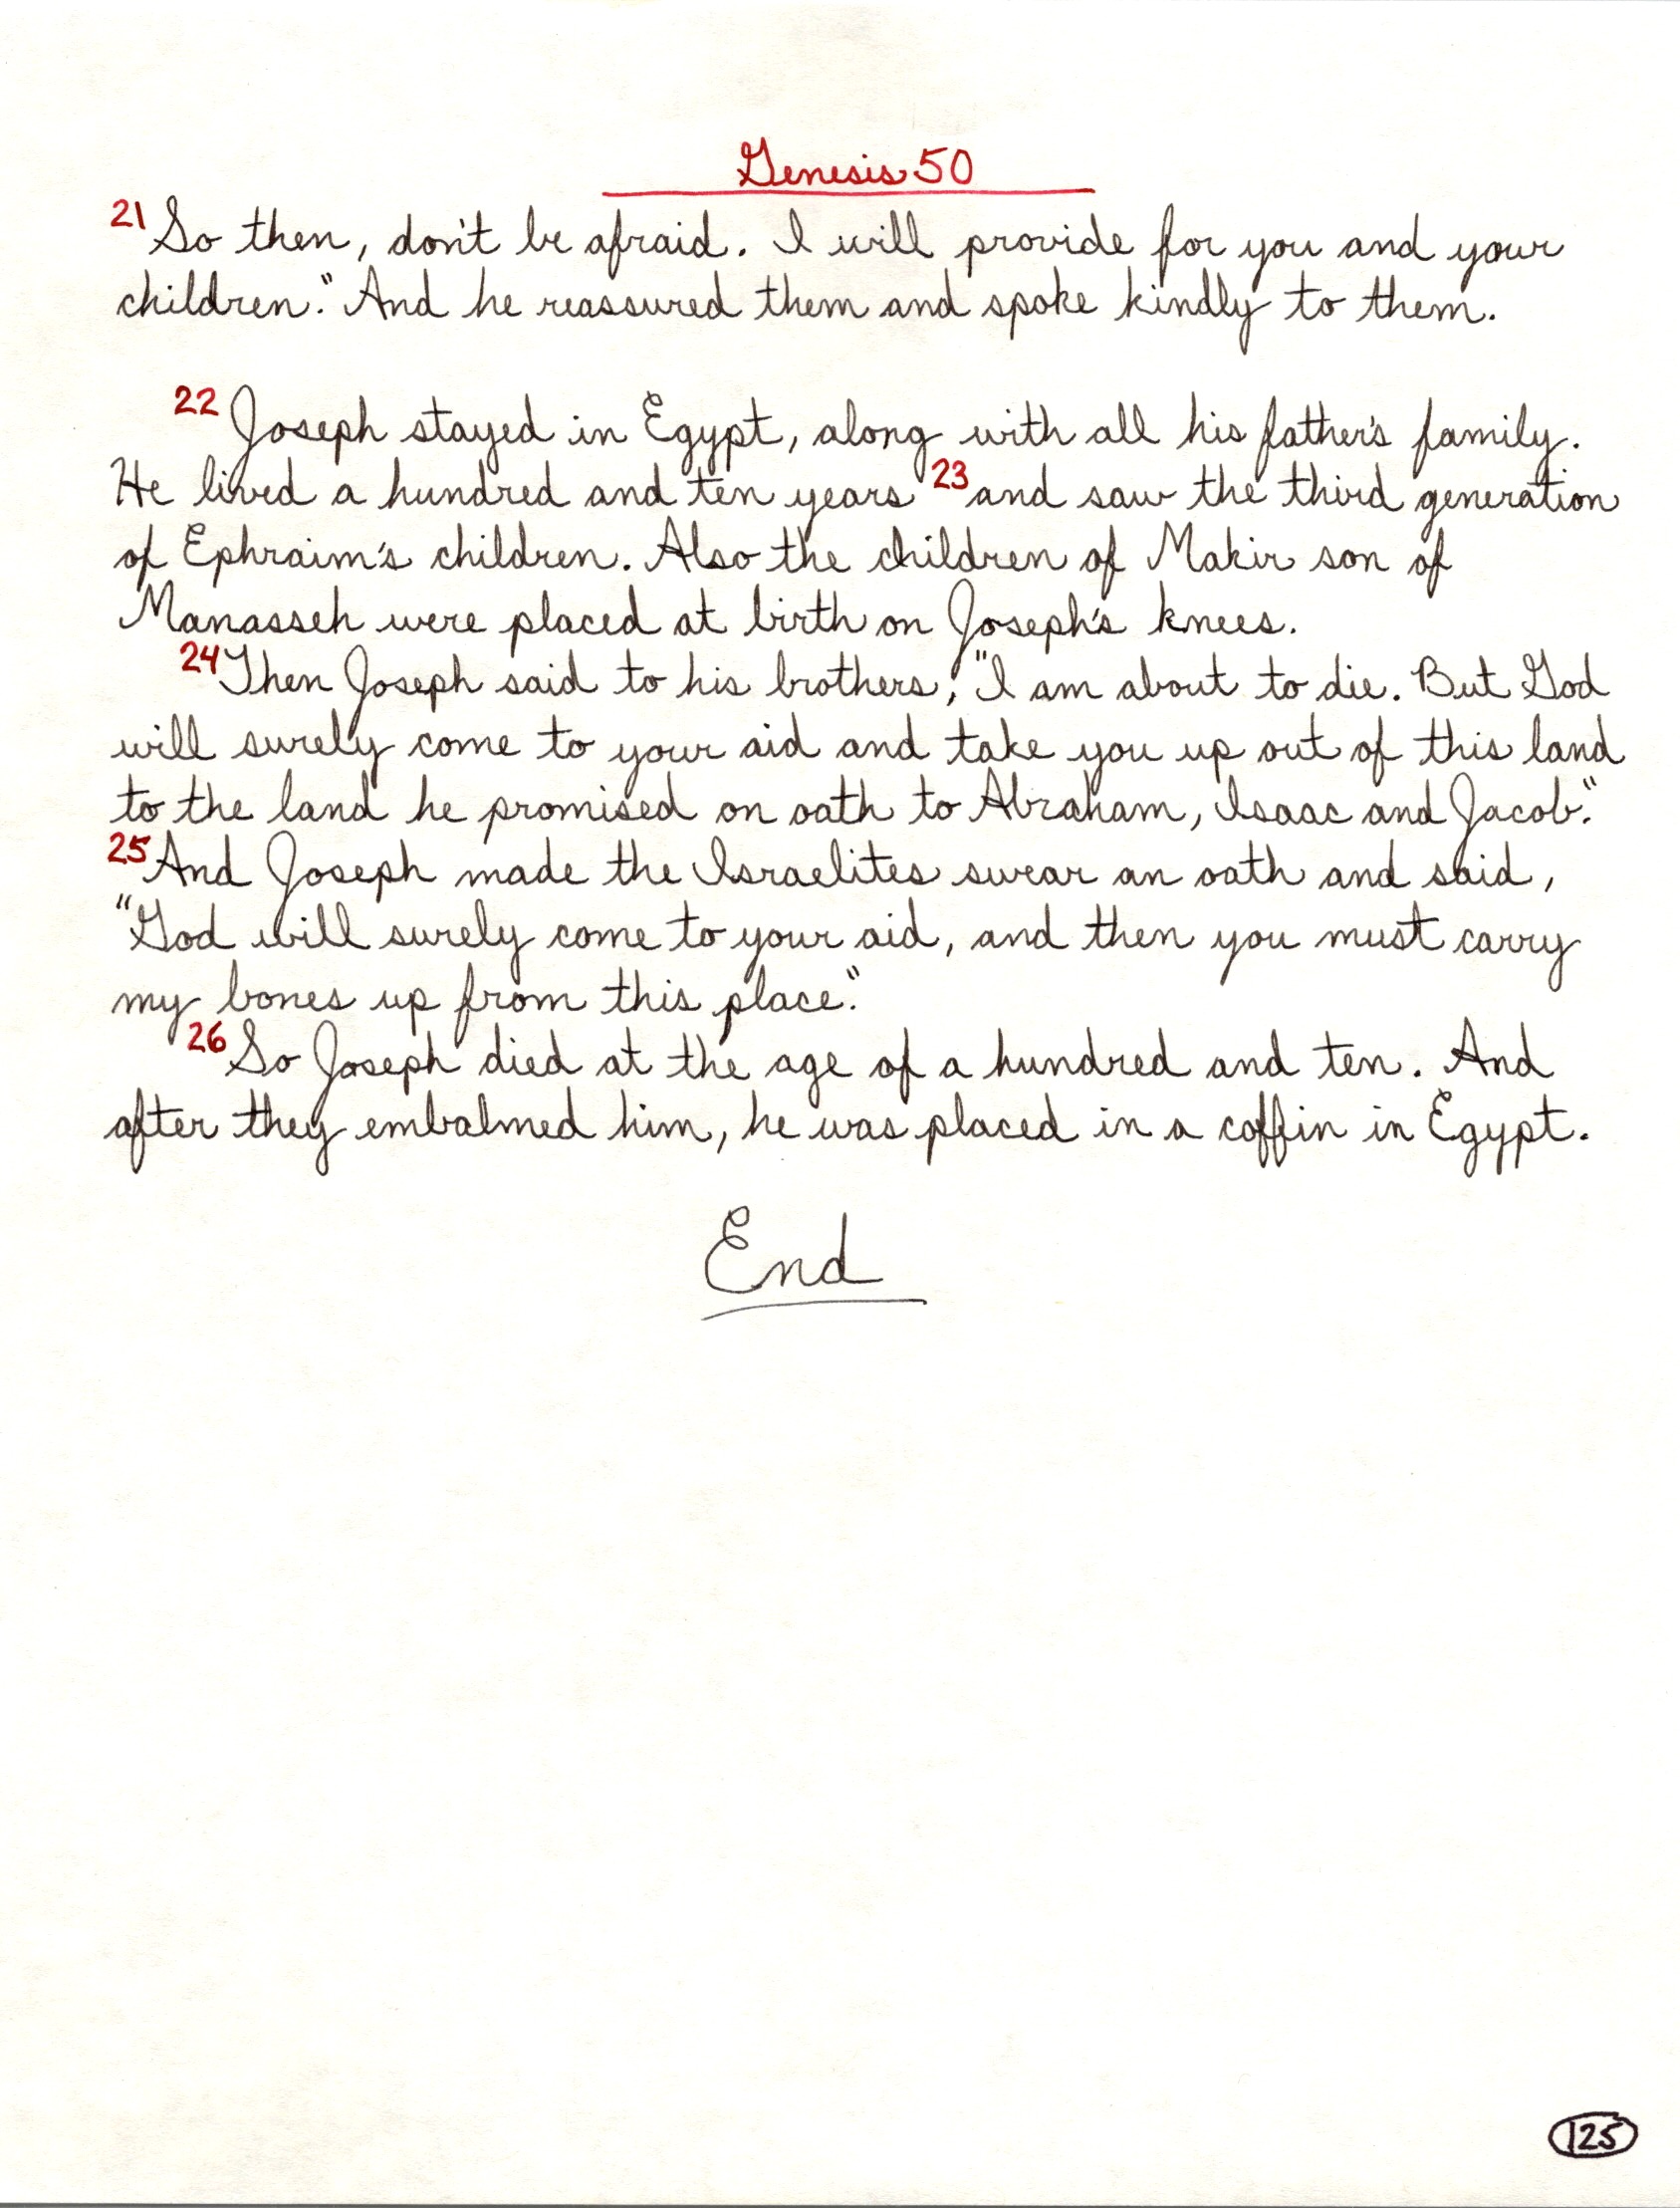 Genesis 50
21 So then, don't be afraid. I will provide for you and your
children." And he reassured them and spoke kindly to them.
22 Joseph stayed in Egypt, along with all his father's family.
He lived a hundred and ten years 23 and saw the third generation
of Ephraim's children. Also the children of Makir son of
Manasseh were placed at birth on Joseph's knees.
24 Then Joseph said to his brothers, "I am about to die. But God
will surely come to your aid and take you up out of this land
to the land he promised on oath to Abraham, Isaac and Jacob."
25 And Joseph made the Israelites swear an oath and said,
"God will surely come to your aid, and then you must carry
my bones up from this place."
26 So Joseph died at the age of a hundred and ten. And
after they embalmed him, he was placed in a coffin in Egypt.
End
125